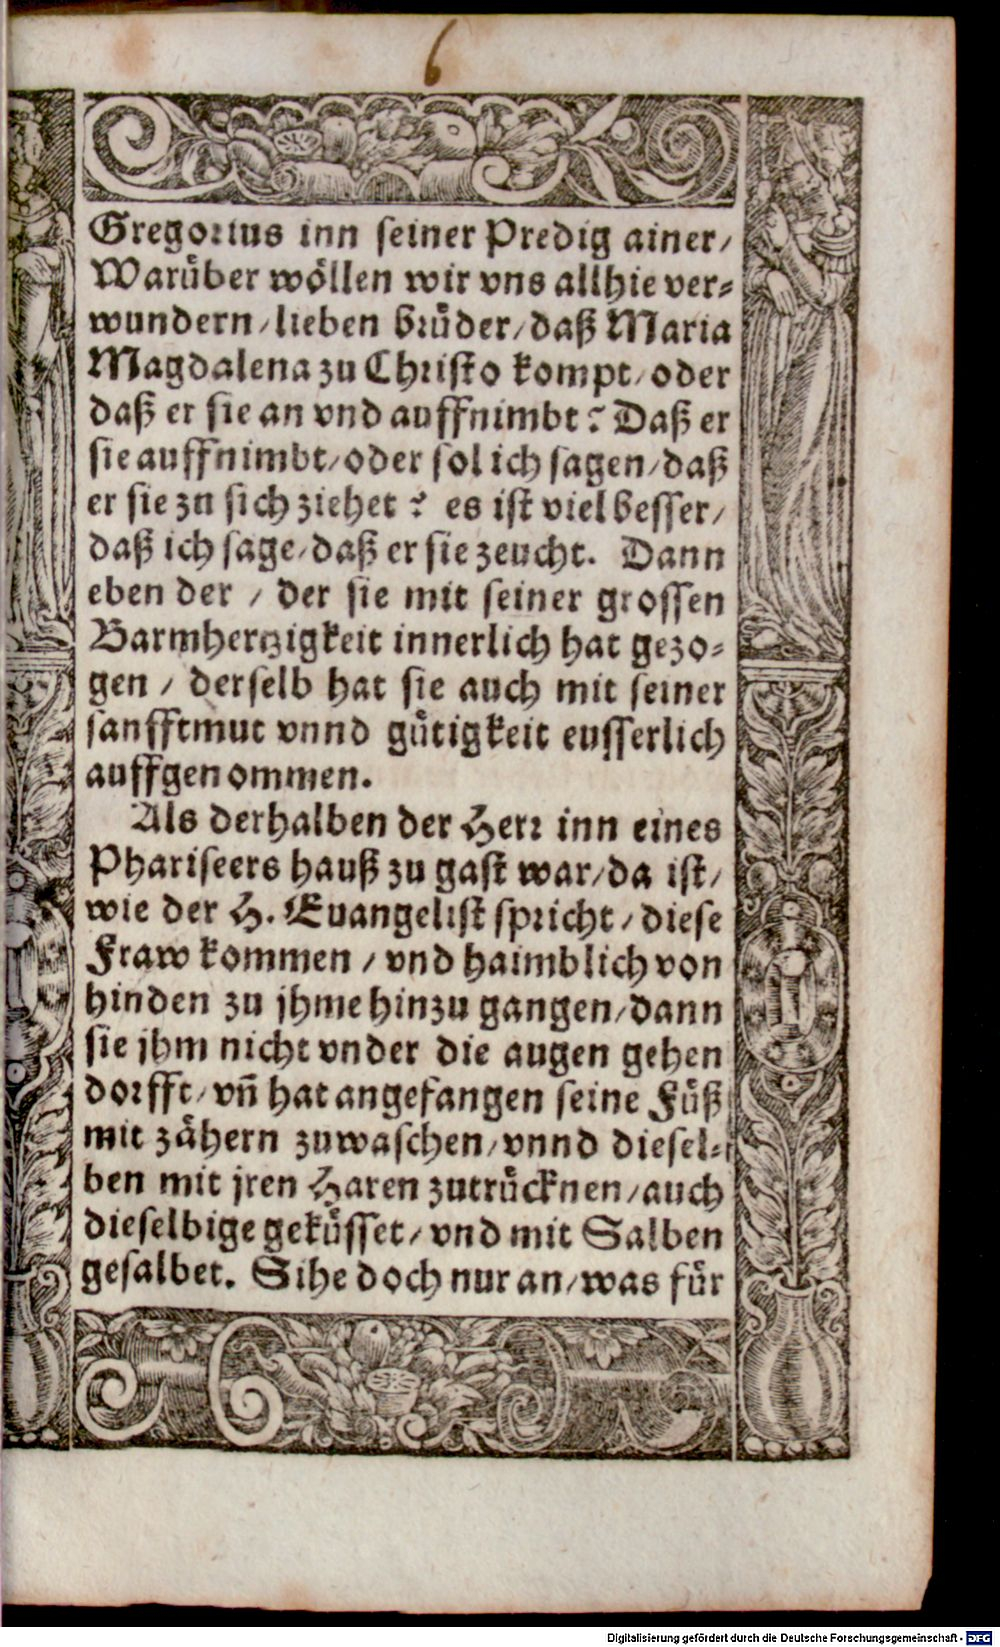 6
Gregorius inn seiner Predig ainer/
Warüber wöllen wir vns allhie ver-
wundern/lieben brüder/daß Maria
Magdalena zu Christo kompt/oder
daß er sie an vnd auffnimbt? Daß er
sie auffnimbt/oder sol ich sagen/daß
er sie zu sich ziehet? es ist viel besser/
daß ich sage/daß er sie zeucht. Dann
eben der / der sie mit seiner grossen
Barmhertzigkeit innerlich hat gezo-
gen / derselb hat sie auch mit seiner
sanfftmut vnnd gütigkeit eusserlich
auffgenommen.
Als derhalben der Herr inn eines
Phariseers hauß zu gast war/da ist/
wie der H. Euangelist spricht/diese
Fraw kommen / vnd haimblich von
hinden zu jhme hinzu gangen/dann
sie jhm nicht vnder die augen gehen
dorfft/vñ hat angefangen seine Füß
mit zähern zuwaschen/vnnd diesel-
ben mit jren Haren zutrücknen/auch
dieselbige geküsset/vnd mit Salben
gesalbet. Sihe doch nur an/was für
Digitalisierung gefördert durch die Deutsche Forschungsgemeinschaft - DFG